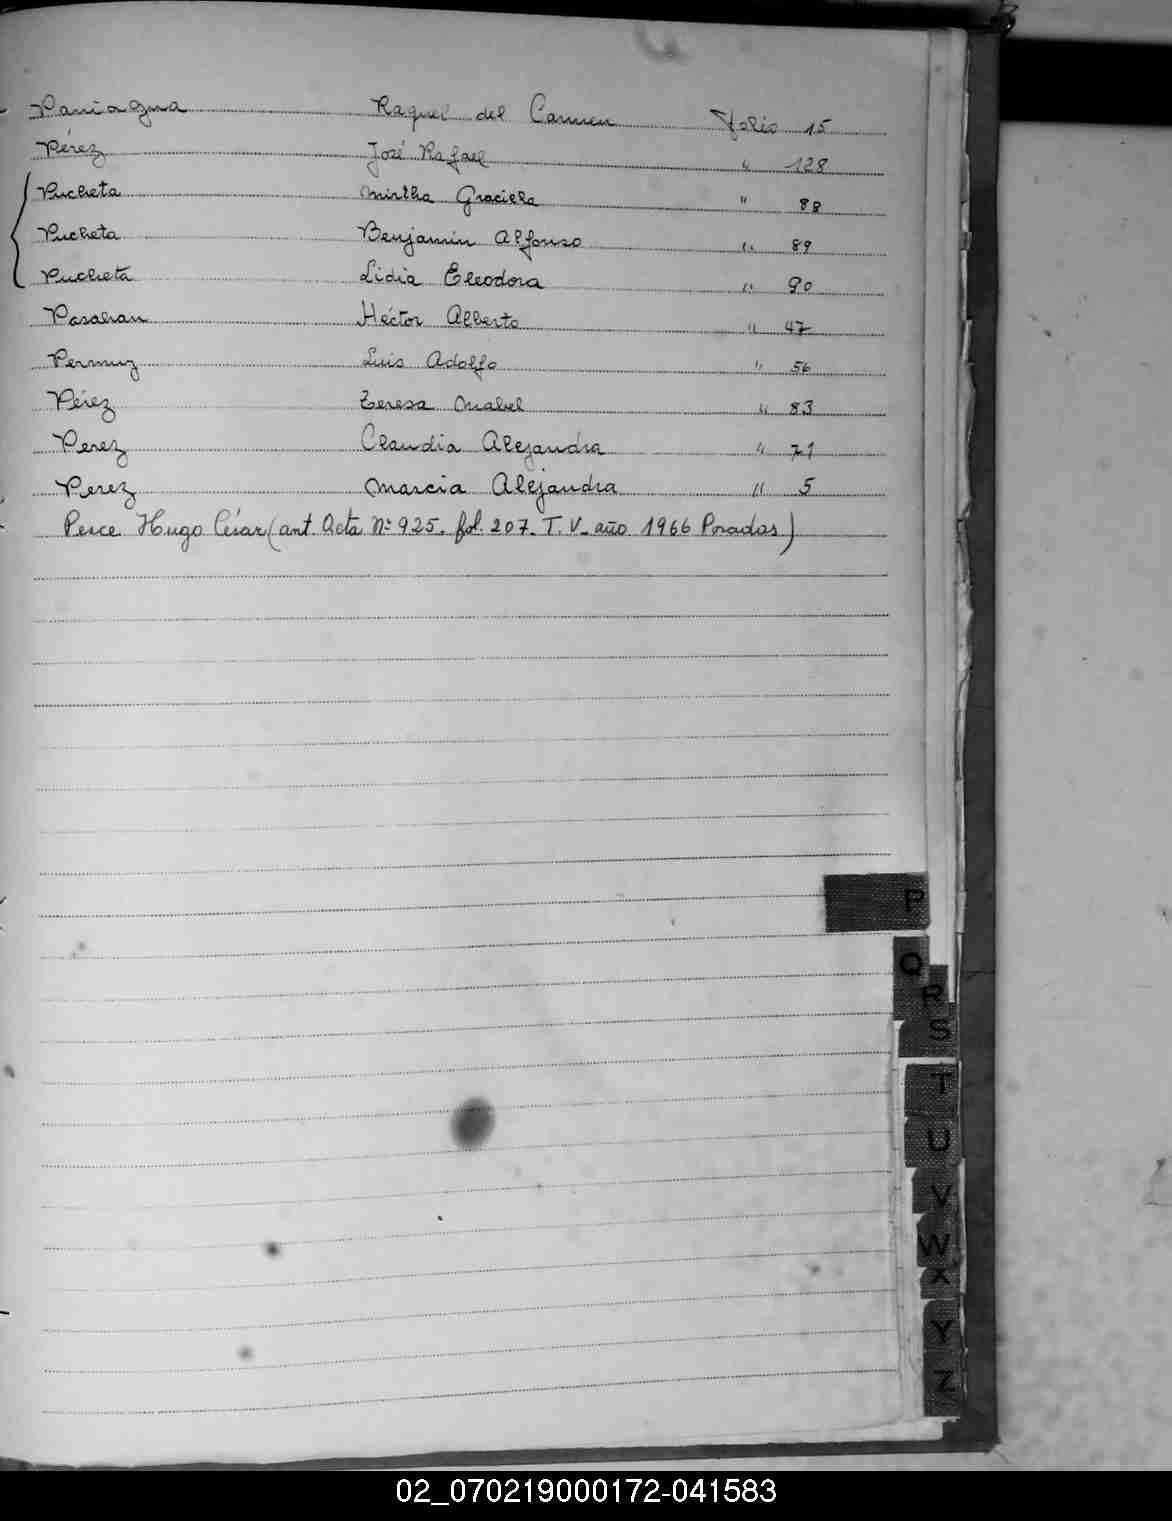 Paniagua Raquel del Carmen Folio 15
Pérez José Rafael " 128
Pucheta Mirtha Graciela " 88
Pucheta Benjamin Alfonso " 89
Pucheta Lidia Eleodora " 90
Héctor Alberto " 47
Permuz Luis Adolfo " 56
Pérez Teresa Mabel " 83
Perez Claudia Alejandra " 71
Perez Marcia Alejandra " 5
Pesce Hugo César (ant. Acta Nº 925. fol. 207. T. V. año 1966 Posadas)
P
Q
R
S
T
U
V
W
X
Y
Z
02_070219000172-041583